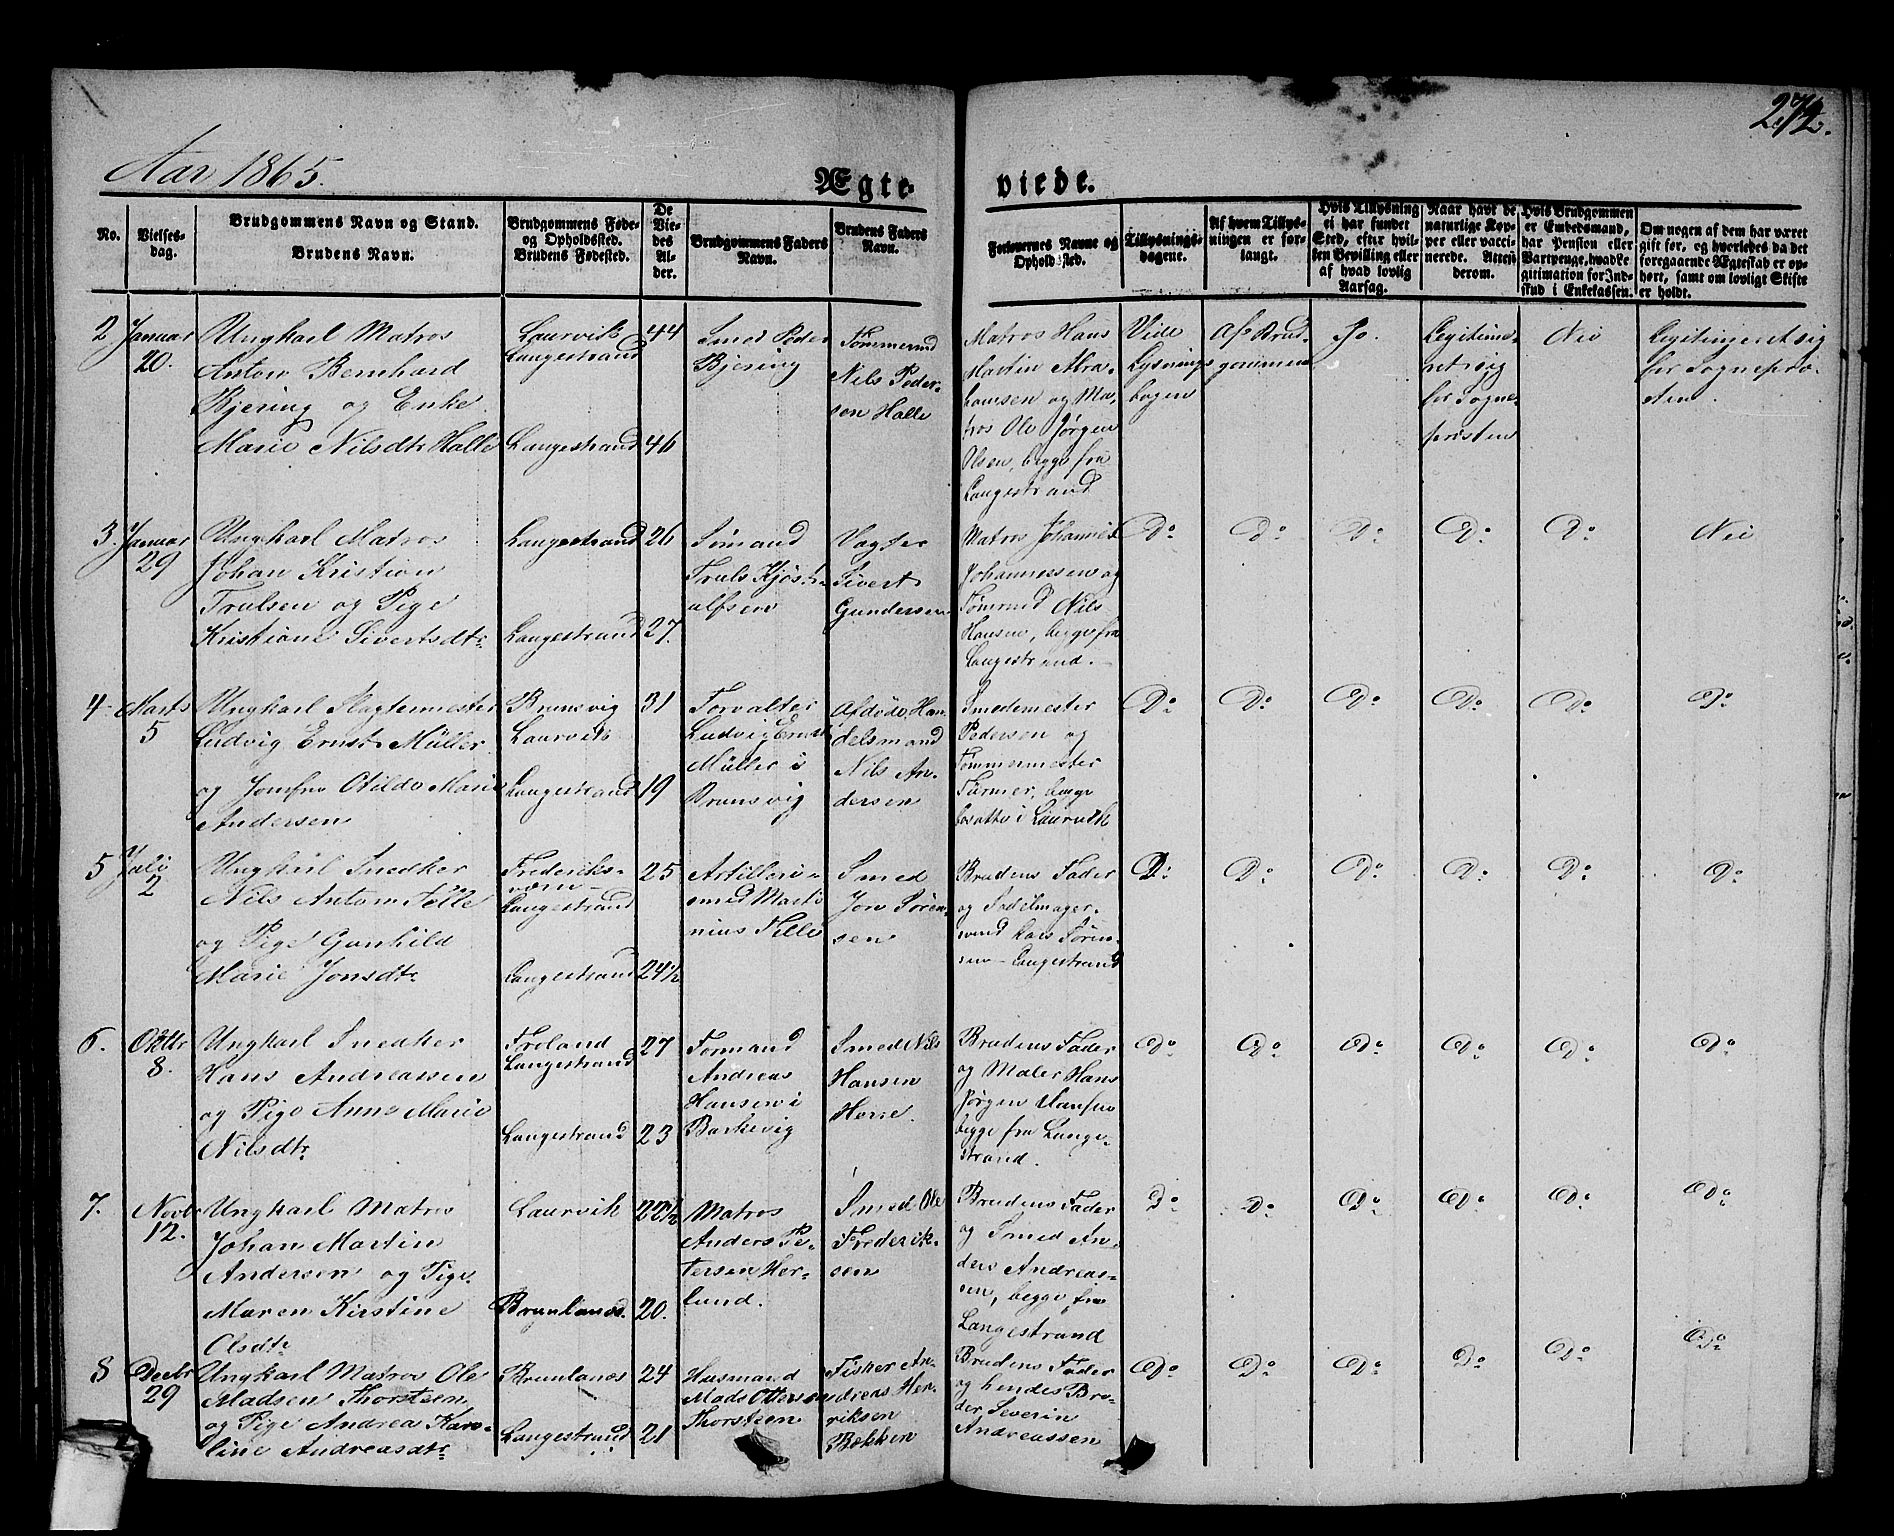 272.
Aar 1865.
Ægte-
viede.
No.
Vielses-
dag.
Brudgommens Navn og Stand.
Brudens Navn.
Brudgommens Føde-
og Opholdssted.
Brudens Fødested.
De
Vie-
des
Al-
der.
Brudgommens Faders
Navn.
Brudens Faders
Navn.
Forlovernes Navne og
Opholdssted.
Tillysnings-
dagene.
Af hvem Tillys-
ningen er for-
langt.
Hvis Tillysning
ei har fundet
Sted, efter hvil-
ken Bevilling eller
af hvad lovlig
Aarsag.
Naar havt de
naturlige Kop-
per eller vacci-
nerede. Attest
derom.
Hvis Brudgommen
er Embedsmand,
har Pension eller
Vartpenge, hvad Le-
gitimation for Ind-
skud i Enkekassen.
Om nogen af dem har været
gift før, og hvorledes da det
foregaaende Ægteskab er op-
hørt, samt om lovligt Skifte
er holdt.
2
Januar
20.
Ungkarl Matros
Anton Bernhard
Bjering og Enke
Marie Nilsdtr Halle
Laurvik
Langestrand
Langestrand
44
46
Smed Peder
Bjering
Tømmermd
Nils Peder-
sen Halle
Matros Hans
Martin Abra-
hamsen og Ma-
tros Ole Jørgen
Olsen, begge fra
Langestrand
Vide
Lysnings
bogen
Af Brud-
gommen
Jo.
Legitime-
ret sig
for Sogne-
præsten
Nei
Legitimeret sig
for Sognepræ-
sten.
3.
Januar
29
Ungkarl Matros
Johan Kristian
Trulsen og Pige
Kristiane Sivertsdtr
Langestrand
Langestrand
26
27.
Sømand
Truls Kjøst-
ulfsen
Vagter
Sivert
Gundersen
Matros Johannes
Johannessen og
Tømmrmd Nils
Hansen, begge fra
Langestrand.
Do
Do
Do
Do
Do
Nei
4-
Marts
5
Ungkarl Slagtermester
Ludvig Ernst Müller
og Jomfru Othilde Marie
Andersen
Brunsvig
Laurvik
Langestrand
31
19
Forvalter
Ludvig Ernst
Müller i
Brunsvig
Afdøde Han-
delsmand
Nils An-
dersen
Smedemester
Pedersen og
Tømmermester
Farmer, begge
bosatte i Laurvik
Do
Do
Do
Do
Do
Do
5
Juli
2
Ungkarl Snedker
Nils Anton Telle
og Pige Gunhild
Marie Jonsdtr
Frederiks-
værn-
Langestrand
Langestrand
25
24½
Artilleri-
smed Marti-
nius Telle
Smed
Jon Søren-
sen
Brudens Fader
og Sadelmager-
svend Lars Søren-
sen - Langestrand
Do
Do
Do
Do
Do
Do
6.
Oktbr
8.
Ungkarl Snedker
Hans Andreassen
og Pige Anne Marie
Nilsdtr
Froland
Langestrand
Langestrand
27
23
Formand
Andreas
Hansen i
Barkevig
Smed Nils
Hansen
Herre.
Brudens Fader
og Maler Hans
Jørgen Hansen
begge fra Lange-
strand.
Do
Do
Do
Do
Do
Do
7.
Novbr
12.
Ungkarl Matros
Johan Martin
Andersen og Pige
Maren Kirstine
Olsdtr
Laurvik
Brunlanes.
22½
20.
Matros
Anders Pe-
tersen Her-
lund.
Smed Ole
Frederik-
sen
Brudens Fader
og Smed An-
ders Andreas-
sen, begge fra
Langestrand
Do
Do
Do
Do
Do
Do
8
Decbr
29
Ungkarl Matros Ole
Madsen Thorsteen
og Pige Andrea Karo-
line Andreasdtr
Brunlanes
Langestrand
24
21
Husmand
Mads Ottersen
Thorsteen
Fisker An-
dreas Hen-
riksen
Bækken
Brudens Fader
og hendes Bro-
der Severin
Andreassen
Do
Do
Do
Do
Do
Do